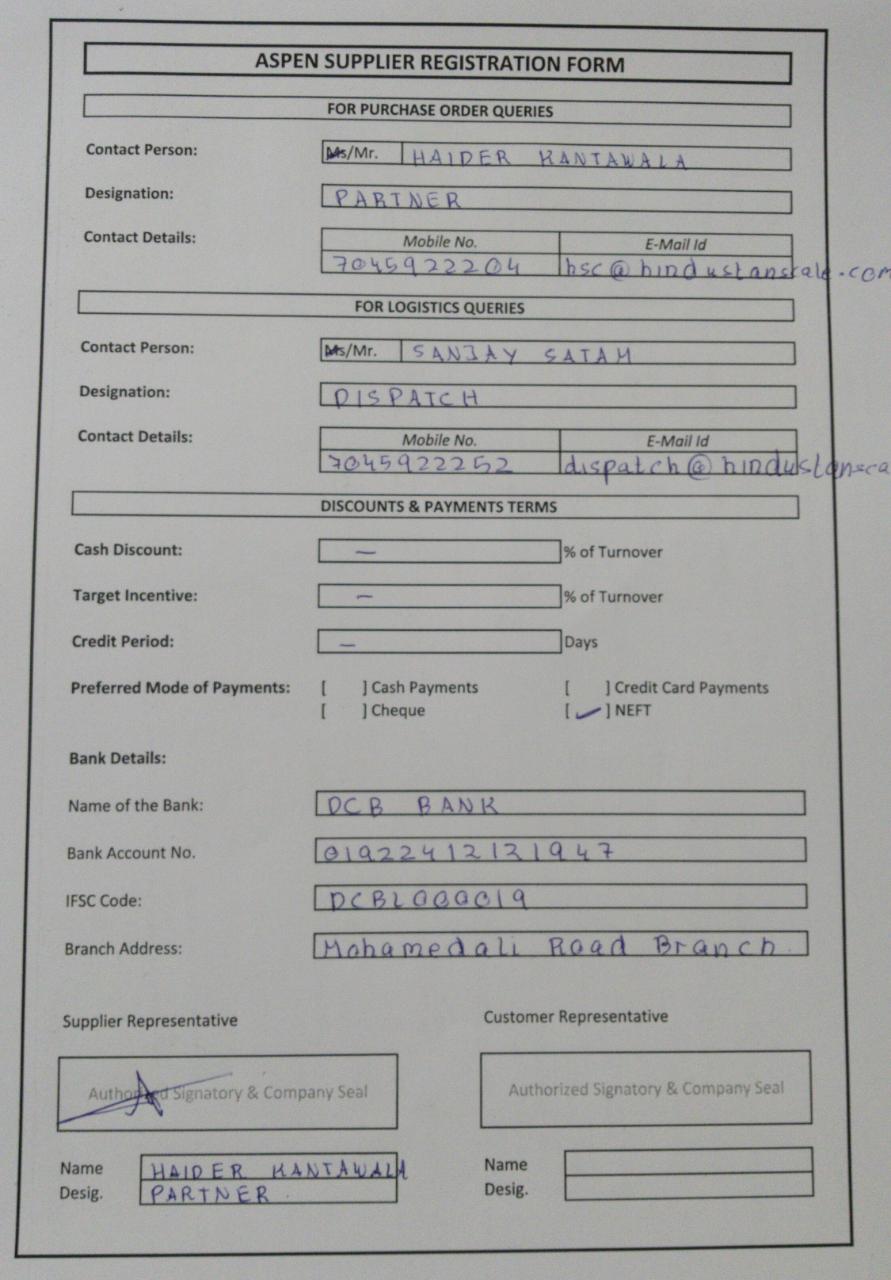 ASPEN SUPPLIER REGISTRATION FORM
FOR PURCHASE ORDER QUERIES
Contact Person: Ms/Mr. HAIDER KANTAWALA
Designation: PARTNER
Contact Details: Mobile No. E-Mail Id
7045922204 hsc@hindustanscale.com
FOR LOGISTICS QUERIES
Contact Person: Ms/Mr. SANJAY SATAM
Designation: DISPATCH
Contact Details: Mobile No. E-Mail Id
7045922252 dispatch@hindustansca
DISCOUNTS & PAYMENTS TERMS
Cash Discount: — % of Turnover
Target Incentive: — % of Turnover
Credit Period: — Days
Preferred Mode of Payments: [ ] Cash Payments [ ] Credit Card Payments
[ ] Cheque [✓] NEFT
Bank Details:
Name of the Bank: DCB BANK
Bank Account No. 01922412121947
IFSC Code: DCBL000019
Branch Address: Mohamedali Road Branch.
Supplier Representative Customer Representative
Authorized Signatory & Company Seal Authorized Signatory & Company Seal
Name HAIDER KANTAWALA Name
Desig. PARTNER Desig.